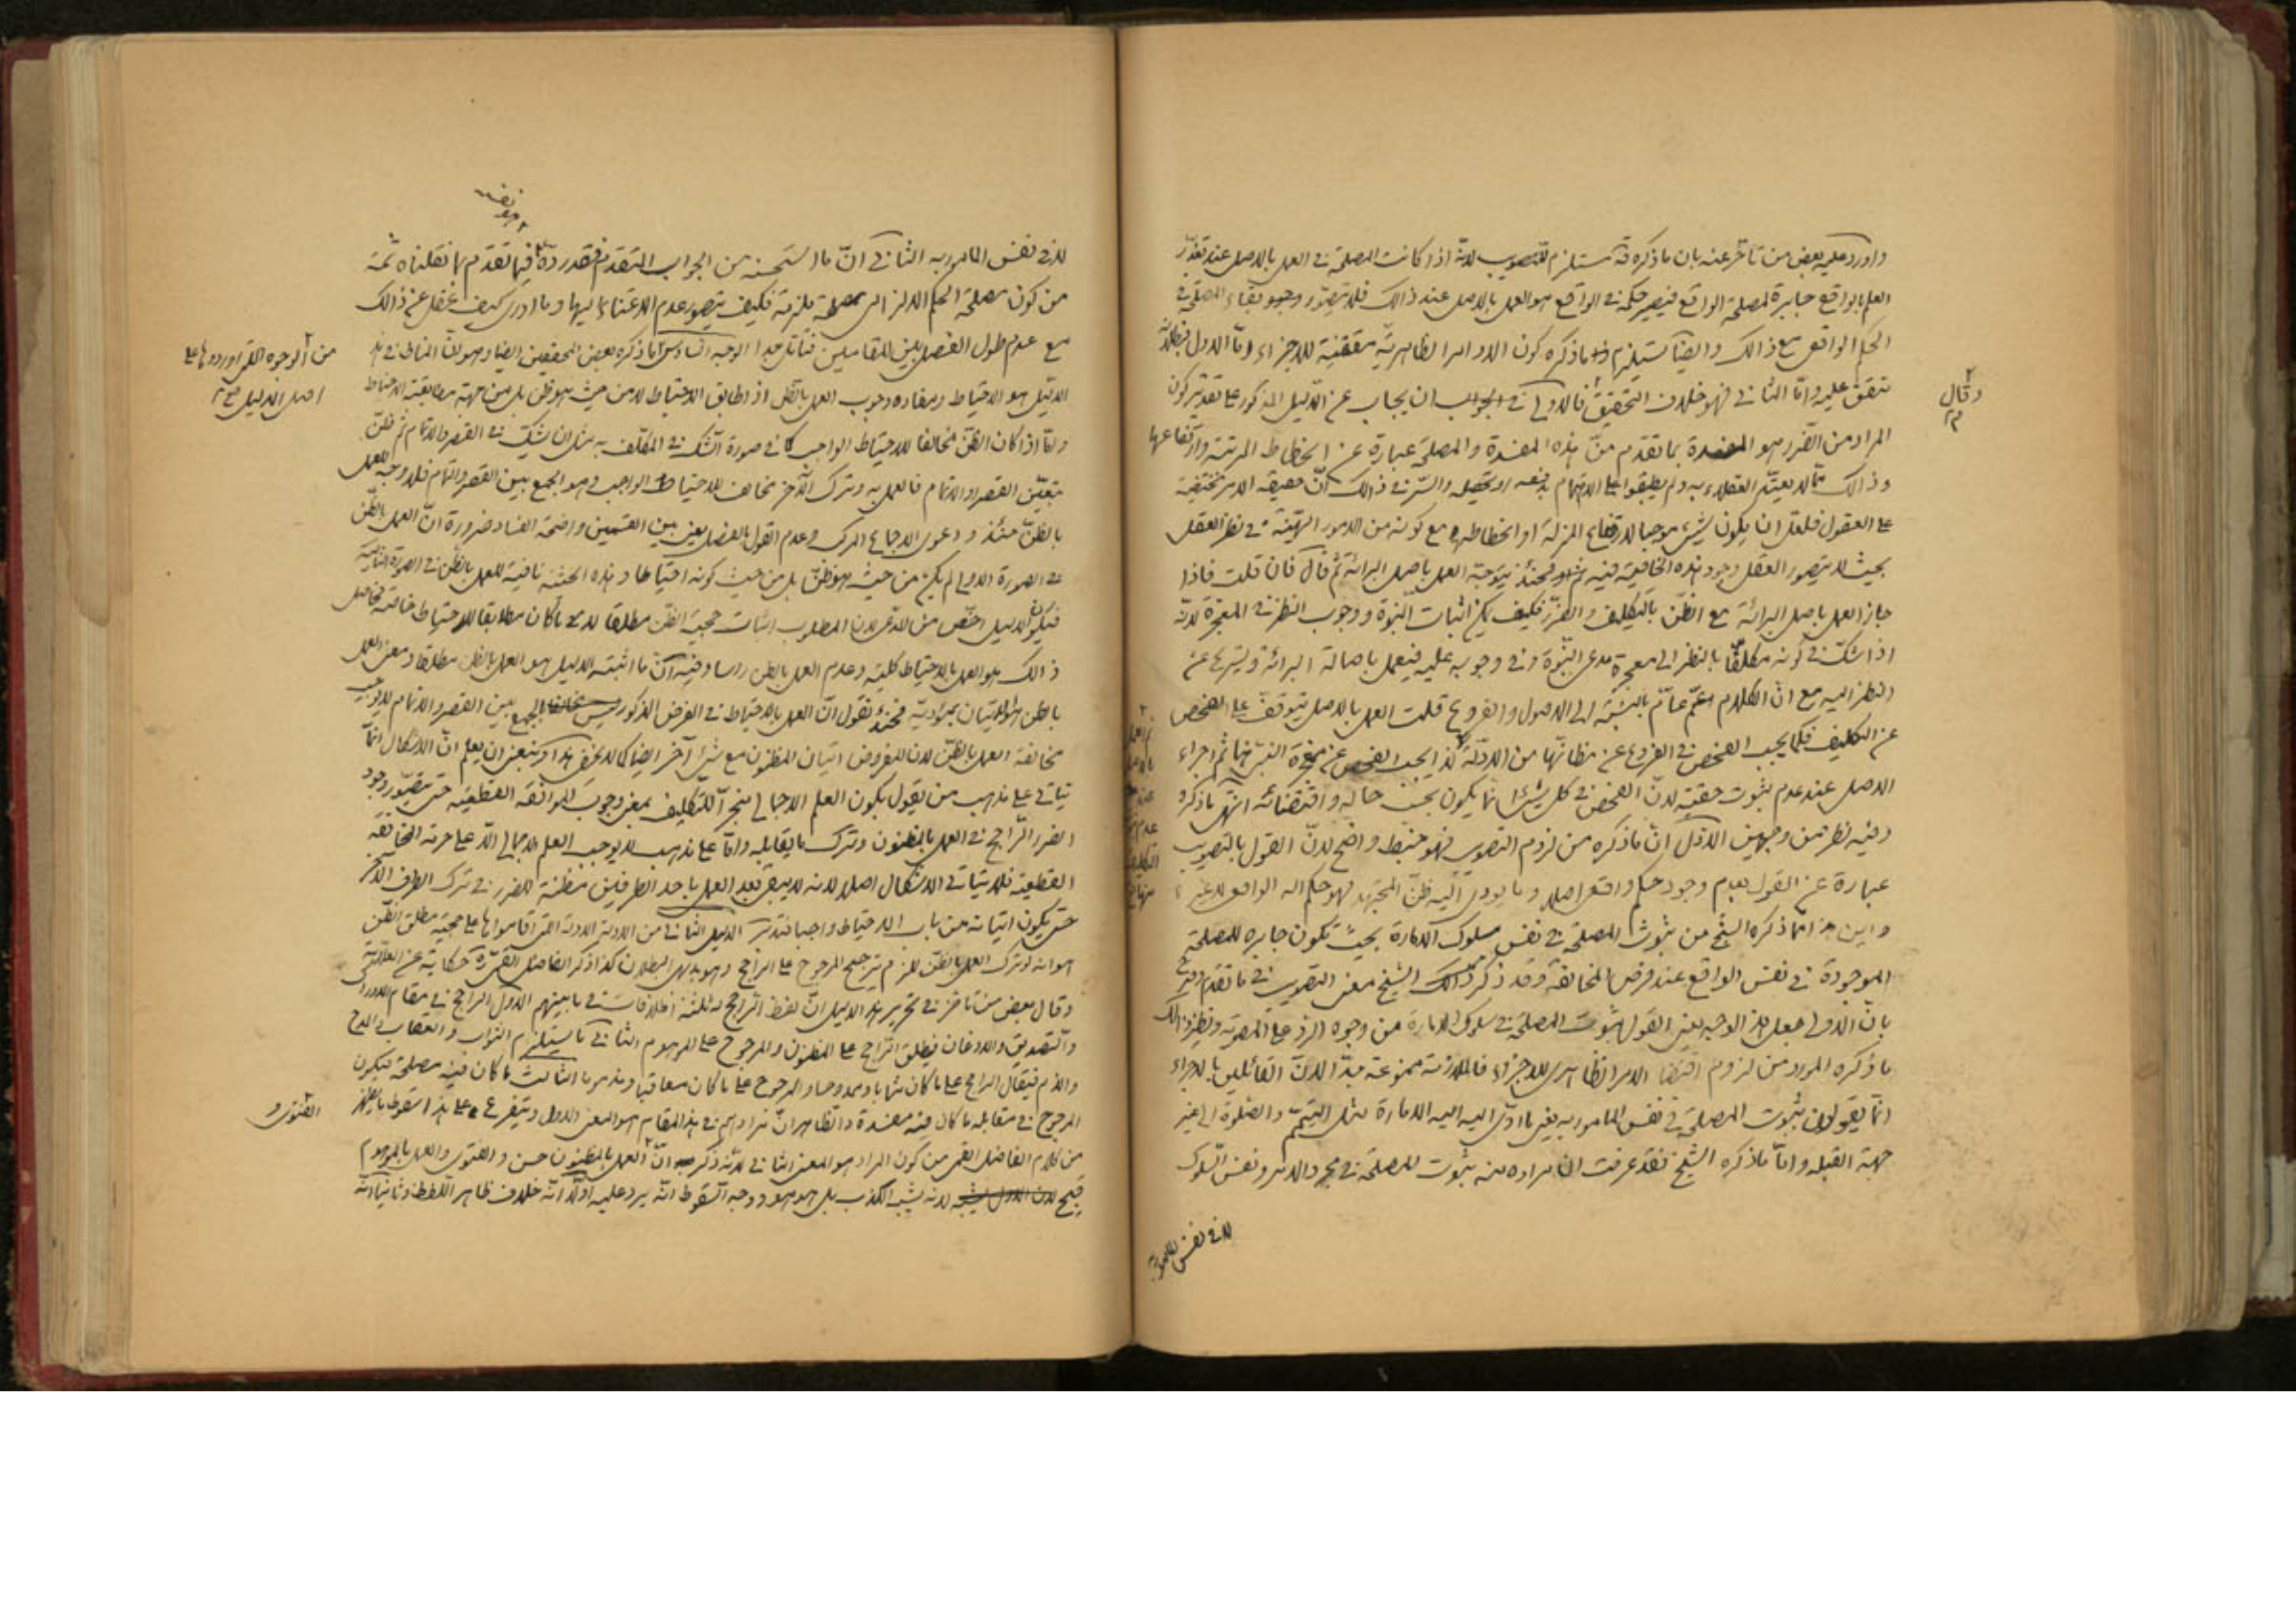 واورد عليه بعض من تاخر عنه بان ما ذكره قد يستلزم للتصويب لانه اذا كانت المصلحة فى العمل بالاصل عند تعذر
العلم بالواقع جابرة لمصلحة الواقع فيصير حكمه فى الواقع هو العمل بالاصل عند ذالك فلا يتصور وجود بقاء المصلحة فى
الحكم الواقعى مع ذالك وايضا يستلزم ما ذكره كون الاوامر الظاهرية مقتضية للاجزاء واما الاول فبطلانه
متفق عليه واما الثانى فهو خلاف التحقيق فالاولى فى الجواب ان يجاب عن الدليل المذكور على تقدير كون
وقال
المراد من الضرر هو المفسدة بما تقدم من هذه المفسدة والمصلحة عبارة عن انحطاط المرتبة وارتفاعها
وذالك مما لا يعتد العقلاء به ولم يطبقوا على الاهتمام بدفعه او تحصيله والسر فى ذالك ان حقيقة الامر مختفية
على العقول فلعل ان يكون شىء موجبا لارتفاع المنزلة او انحطاطها مع كونه من الامور الهينة فى نظر العقل
بحيث لا يتصور العقل وجود هذه الخاصية فيه فحينئذ يتوجه العمل باصل البرائة ثم قال فان قلت فاذا
جاز العمل باصل البرائة مع الظن بالتكليف والضرر فكيف يمكن اثبات النبوة ووجوب النظر فى المعجزة لانه
اذا شك فى كونه مكلفا بالنظر الى معجزة مدعى النبوة وفى وجوبه عليه فيعمل باصالة البرائة ويستريح عن
النظر اليه مع ان الكلام عام بالنسبة الى الاصول والفروع قلت العمل بالاصل يتوقف على الفحص
عن التكليف فكما يجب الفحص فى الفروع عن مظانها من الادلة كذا يجب الفحص عن معجزة النبى ثم اجراء
الاصل عند عدم ثبوت حقيته لان الفحص فى كل شىء انما يكون بحسب حاله واقتضائه انتهى ما ذكره
وفيه نظر من وجهين الاول ان ما ذكره من لزوم التصويب فهو خبط واضح لان القول بالتصويب
عبارة عن القول بعدم وجود حكم واقعى اصلا وما يودى اليه ظن المجتهد فهو حكم اله الواقعى لا غير
واين هذا مما ذكره الشيخ من ثبوت المصلحة فى نفس سلوك الامارة بحيث تكون جابره للمصلحة
الموجودة فى نفس الواقع عند فرض المخالفة وقد ذكر ذالك الشيخ معنى التصويب فى ما تقدم
بان الاولى جعل هذا الوجه يعنى القول بثبوت المصلحة فى سلوك الامارة من وجوه الرد على المصوبة ونظير ذالك
ما ذكره المورد من لزوم اقتضاء الامر الظاهرى للاجزاء فالملازمة ممنوعة جدا لان القائلين بالاجراء
انما يقولون بثبوت المصلحة فى نفس المامور به يعنى ما ادى اليه الامارة مثل التيمم والصلوة الى غير
جهة القبله واما ما ذكره الشيخ فقد عرفت ان مراده منه ثبوت المصلحة فى مجرد الامر ونفس السلوك
لا فى نفس المامور به
لا فى نفس المامور به الثانى ان ما استحسنه من الجواب المتقدم فقد رده فيما تقدم بما نقلناه ثمة
من كون مصلحة الحكم الالزامى مصلحة ملزمة فكيف يتصور عدم الاعتناء اليها وما ادرى كيف غفل عن ذالك
مع عدم طول الفصل بين المقامين فتامل جدا الوجه السادس ما ذكره بعض المحققين ايضا وهو ان المناط فى هذا
من الوجوه التى اوردوها على
اصل الدليل
الدليل هو الاحتياط ومفاده وجوب العمل بالظن اذا طابق الاحتياط لا من حيث هو ظن بل من جهة مطابقته الاحتياط
واما اذا كان الظن مخالفا للاحتياط الواجب كما فى صورة الشك فى المكلف به مثل ان يشك فى القصر والاتمام ثم ظن
بتعين القصر او الاتمام فالعمل به وترك الآخر مخالف للاحتياط الواجب وهو الجمع بين القصر والتمام فلا وجه للعمل
بالظن حينئذ ودعوى الاجماع المركب وعدم القول بالفصل يعنى بين القسمين واضحة الفساد ضرورة ان العمل بالظن
فى الصورة الاولى لم يكن من حيث هو ظن بل من حيث كونه احتياطا وهذه الحيثية نافية للعمل بالظن فى الصورة الثانية
فيكون الدليل اخص من المدعى لان المطلوب اثبات حجية الظن مطلقا لا ما كان مطابقا للاحتياط خاصة فحاصل
ذالك هو العمل بالاحتياط كلية وعدم العمل بالظن راسا وفيه ان ما اثبته الدليل هو العمل بالظن مطلقا ومعنى العمل
بالظن هو الاتيان بموديه فحينئذ نقول ان العمل بالاحتياط فى الفرض المذكور الجمع بين القصر والاتمام لا يوجب
مخالفة العمل بالظن لان المفروض اتيان المظنون مع شىء آخر ايضا كما لا يخفى هذا وينبغى ان يعلم ان الاشكال انما
يتاتى على مذهب من يقول بكون العلم الاجمالى منجز التكليف بمعنى وجوب الموافقة القطعية حتى يتصور وجود
الضرر الراجح فى العمل بالمظنون وترك ما يقابله واما على مذهب لا يوجب العلم الاجمالى الا على حرمة المخالفة
القطعية فلا يتاتى الاشكال اصلا لانه لا يبقى بعد العمل باحد الطرفين مظنة للضرر فى ترك الطرف الآخر
حتى يكون اتيانه من باب الاحتياط واجبا فتدبر الدليل الثانى من الادلة الادلة التى اقاموا ها على حجية مطلق الظن
هو انه لو ترك العمل بالظن للزم ترجيح المرجوح على الراجح وهو بديهى البطلان كذا ذكر الفاضل القمى ره حكاية عن العلامة
وقال بعض من تاخر فى تحرير هذا الدليل ان لفظ الراجح له ثلثة اطلاقات فى ما بينهم الاول الراجح فى مقام الادراك
والتصديق والاذعان فيطلق الراجح على المظنون والمرجوح على الموهوم الثانى ما يستلزم الثواب والعقاب والمدح
والذم فيقال الراجح على ما كان مثابا وممدوحا والمرجوح على ما كان معاقبا ومذموما الثالث ما كان فيه مصلحة فيكون
المرجوح فى مقابله ما كان فيه مفسدة والظاهر ان مرادهم فى هذا المقام هو المعنى الاول ويتفرع على هذا سقوط ما يظهر
من كلام الفاضل القمى من كون المراد هو المعنى الثانى لانه ذكر ان الفتوى و العمل بالمظنون حسن والفتوى والعمل بالموهوم
قبيح لانه يشبه الكذب بل هو هو ووجه السقوط انه يرد عليه اولا انه خلاف ظاهر اللفظ وثانيا انه